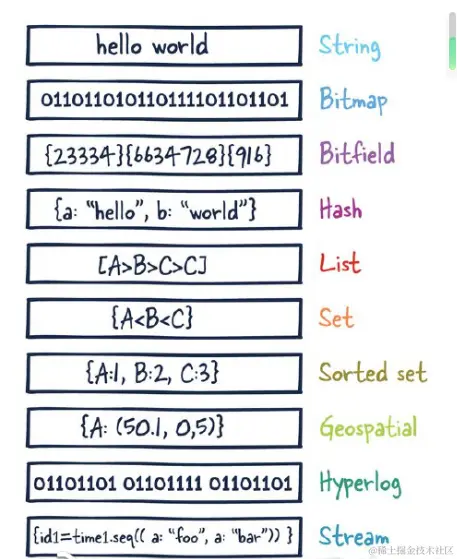 hello world String
011011010110111101101101 Bitmap
{23334}{6634728}{916} Bitfield
{a: “hello”, b: “world”} Hash
[A>B>C>C] List
{A<B<C} Set
{A:1, B:2, C:3} Sorted set
{A: (50.1, 0,5)} Geospatial
01101101 01101111 01101101 Hyperlog
{id1=time1.seq(( a: “foo”, a: “bar”)) } Stream
@稀土掘金技术社区